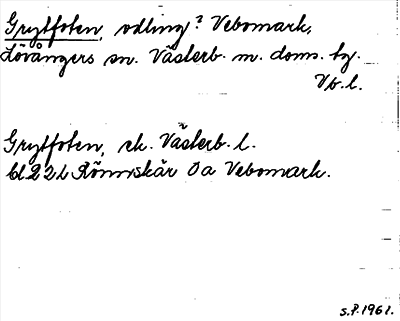 Grytfoten, odling? Vebomark,
Lövångers sn. Västerb. m. doms. bg.
Vb. l.
Grytfoten, ek. Västerb. l.
bl 22 L Rönnskär Öa Vebomark.
S.P. 1961.